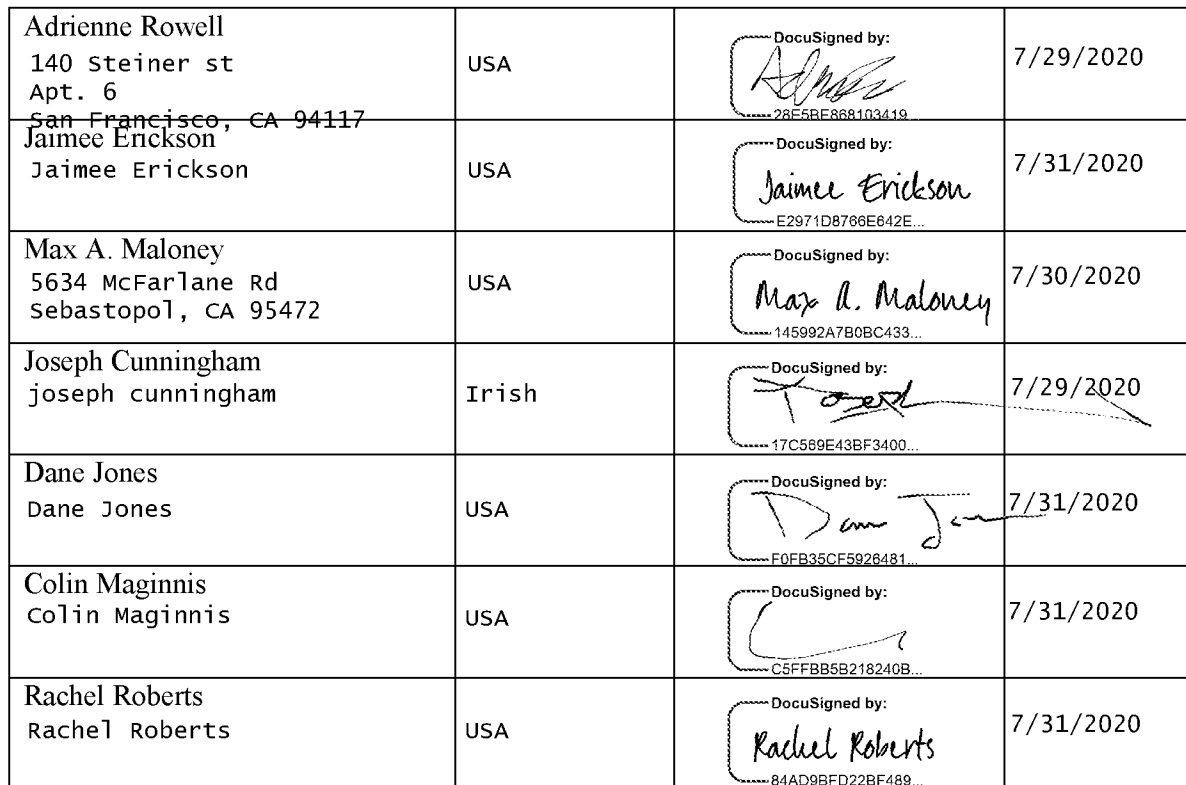 Adrienne Rowell
140 Steiner st
Apt. 6
San Francisco, CA 94117
USA
DocuSigned by:
28E5BE868103419...
7/29/2020
Jaimee Erickson
Jaimee Erickson
USA
DocuSigned by:
Jaimee Erickson
E2971D8766E642E...
7/31/2020
Max A. Maloney
5634 McFarlane Rd
Sebastopol, CA 95472
USA
DocuSigned by:
Max A. Maloney
145992A7B0BC433...
7/30/2020
Joseph Cunningham
joseph cunningham
Irish
DocuSigned by:
Joseph
17C569E43BF3400...
7/29/2020
Dane Jones
Dane Jones
USA
DocuSigned by:
F0FB35CF5926481...
7/31/2020
Colin Maginnis
Colin Maginnis
USA
DocuSigned by:
C5FFBB5B218240B...
7/31/2020
Rachel Roberts
Rachel Roberts
USA
DocuSigned by:
Rachel Roberts
84AD9BFD22BF489...
7/31/2020